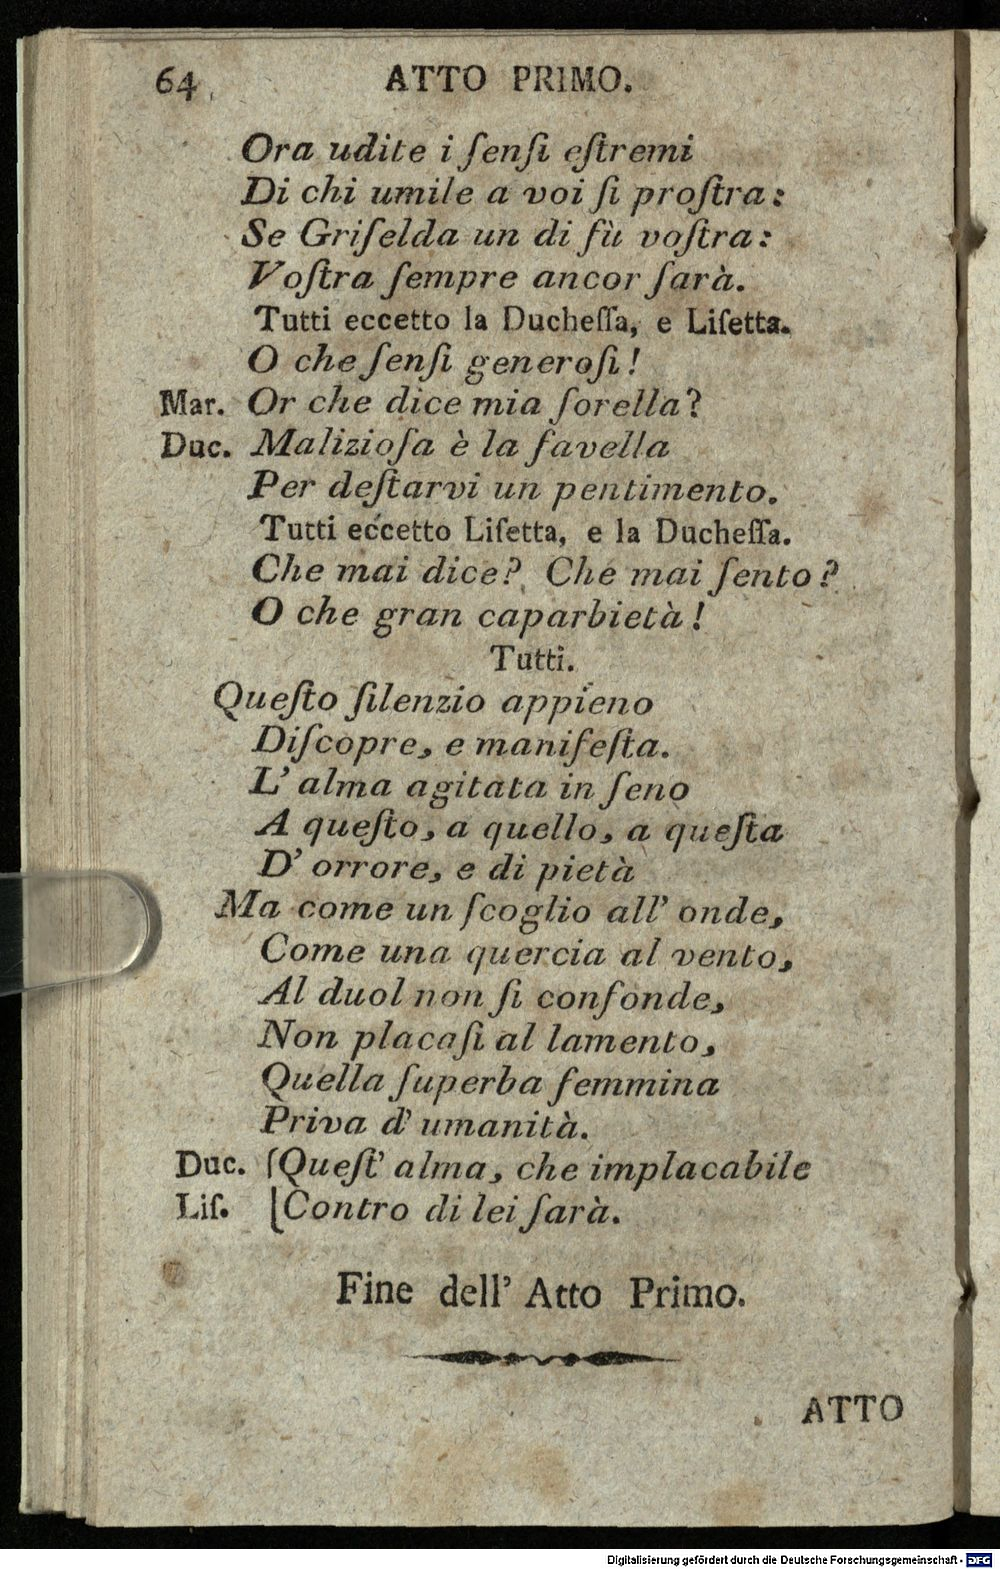 64
ATTO PRIMO.
Ora udite i ſenſi eſtremi
Di chi umile a voi ſi proſtra:
Se Griſelda un di fù voſtra:
Voſtra ſempre ancor ſarà.
Tutti eccetto la Ducheſſa, e Liſetta.
O che ſenſi generoſi!
Mar. Or che dice mia ſorella?
Duc. Malizioſa è la favella
Per deſtarvi un pentimento.
Tutti eccetto Liſetta, e la Ducheſſa.
Che mai dice? Che mai ſento?
O che gran caparbietà!
Tutti.
Queſto ſilenzio appieno
Diſcopre, e manifeſta.
L' alma agitata in ſeno
A queſto, a quello, a queſta
D' orrore, e di pietà
Ma come un ſcoglio all' onde,
Come una quercia al vento,
Al duol non ſi confonde,
Non placaſi al lamento,
Quella ſuperba femmina
Priva d' umanità.
Duc. (Queſt' alma, che implacabile
Liſ. [Contro di lei ſarà.
Fine dell' Atto Primo.
ATTO
Digitalisierung gefördert durch die Deutsche Forschungsgemeinschaft - DFG